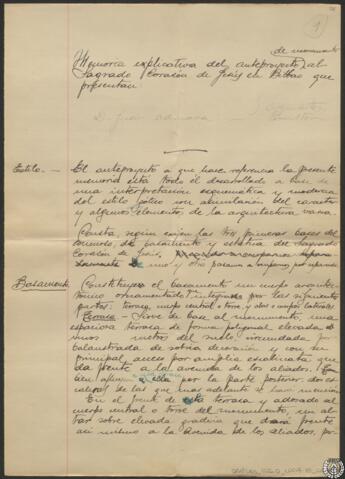 1
de monumento
Memoria explicativa del anteproyecto al
Sagrado Corazón de Jesús en Bilbao que
presentan
D. Juan
Estilo.— El anteproyecto a que hace referencia la presente
memoria está todo el desarrollado a base de
una interpretación esquemática y moderna
del estilo gótico con simulación del caracter
y algunos elementos de la arquitectura vasca.
Consta, según exijen las tres primeras bases del
concurso, de basamento y estatua del Sagrado
Corazón de Jesús.
uno y otro pasamos a
Basamento. Constituye el basamento un cuerpo arquitec-
tónico ornamentado integrado por las siguientes
partes: terraza, cuerpo central o torre y
Terraza — Sirve de base al monumento, una
espaciosa terraza de forma poligonal elevada
unos metros del suelo, circundada por
balaustrada de sobria decoración y con su
principal acceso por amplia escalinata que
da frente a la avenida de los aliados.
a ella por la parte posterior dos es-
caleras de las que mas adelante se hace mención
En el frente de esta terraza y adosado al
cuerpo central o torre del monumento, un al-
tar sobre elevada gradería que dará frente
así mismo a la Avenida de los Aliados, por